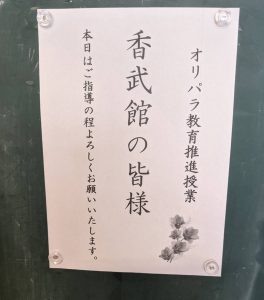 オリパラ教育推進授業
香武館の皆様
本日はご指導の程よろしくお願いいたします。